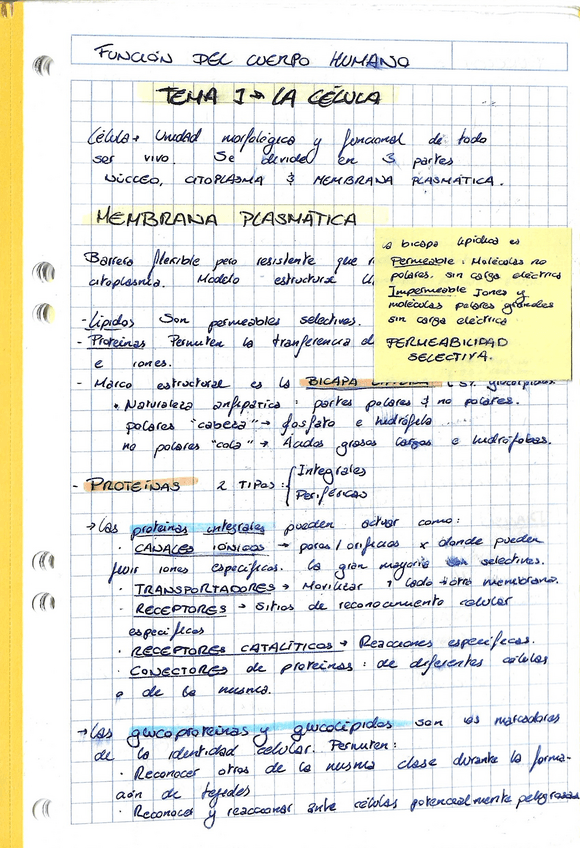 FUNCIÓN DEL CUERPO HUMANO
TEMA 1 → LA CÉLULA
Célula → Unidad morfológica y funcional de todo
ser vivo. Se divide en 3 partes
NÚCLEO, CITOPLASMA & MEMBRANA PLASMÁTICA.
MEMBRANA PLASMÁTICA
Barrera flexible pero resistente que
citoplasma. Modelo estructural
- Lípidos Son permeables selectivos.
- Proteinas Permiten la tranferencia
e iones.
- Marco estructural es la BICAPA
• Naturaleza anfipática : partes polares & no polares.
polares "cabeza" → fosfato e hidrófila
no polares "cola" → Ácidos grasos largos e hidrófobas.
La bicapa lipídica es
Permeable : Moléculas no
polares. sin carga eléctrica
Impermeable Iones y
moléculas polares grandes
sin carga eléctrica
PERMEABILIDAD
SELECTIVA.
- PROTEINAS 2 TIPOS : { Integrales
Periféricas
→ Las proteinas integrales pueden actuar como :
· CANALES IÓNICOS → poros / orificios x donde pueden
fluir iones específicos. La gran mayoría son selectivos.
· TRANSPORTADORES → Movilizar 1 lado → otro membrana.
· RECEPTORES → Sitios de reconocimiento celular
específicos
· RECEPTORES CATALÍTICOS → Reacciones específicas.
· CONECTORES de proteinas : de diferentes células
o de la misma.
→ Las glucoproteinas y glucolípidos son los marcadores
de la identidad celular. Permiten :
· Reconocer otros de la misma clase durante la forma-
ción de tejidos
· Reconocer y reaccionar ante células potencialmente peligrosas